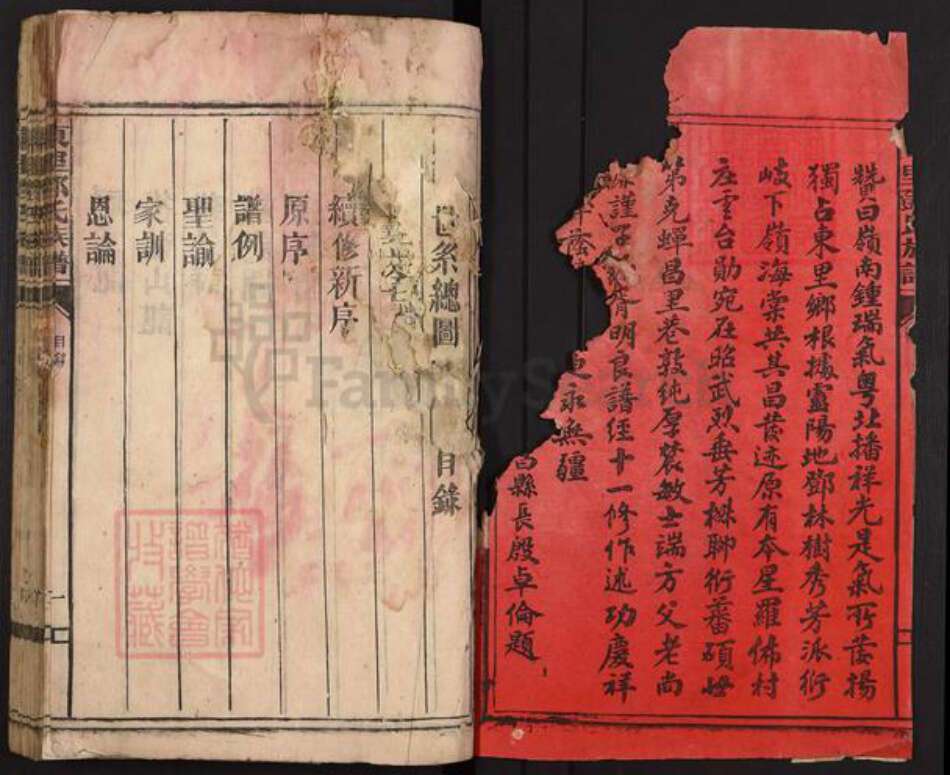 贊曰嶺南鍾瑞氣粵北播祥光是氣所發揚
獨占東里鄉根據靈陽地鄧林樹秀芳派衍
岐下嶺海棠共其昌發迹原有本星羅佈村
庄雲台勛宛在昭武烈垂芳椒聊衍蕃碩世
第克蟬昌里巷敦純厚農敏士端方父老尚
謹 胥明良譜經十一修作述功慶祥
蔭 更永無疆
縣長殷卓倫題
世系總圖 目錄
續修新序
原序
譜例
聖諭
家訓
恩論
東里鄧氏族譜
目錄
一
FamilySearch